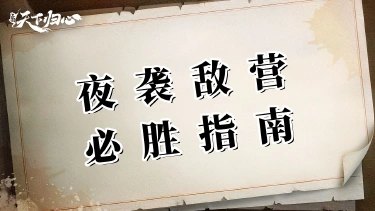 天下归心
夜袭敌营
必胜指南